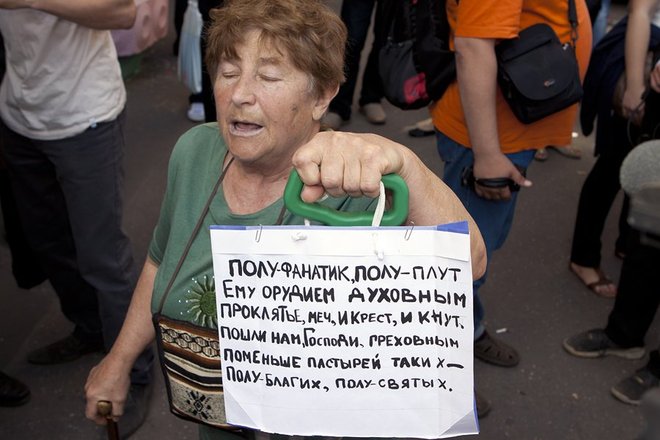 ПОЛУ-ФАНАТИК, ПОЛУ-ПЛУТ
ЕМУ ОРУДИЕМ ДУХОВНЫМ
ПРОКЛЯТЬЕ, МЕЧ, И КРЕСТ, И КНУТ.
ПОШЛИ НАМ, ГОСПОДИ, ГРЕХОВНЫМ
ПОМЕНЬШЕ ПАСТЫРЕЙ ТАКИХ—
ПОЛУ-БЛАГИХ, ПОЛУ-СВЯТЫХ.